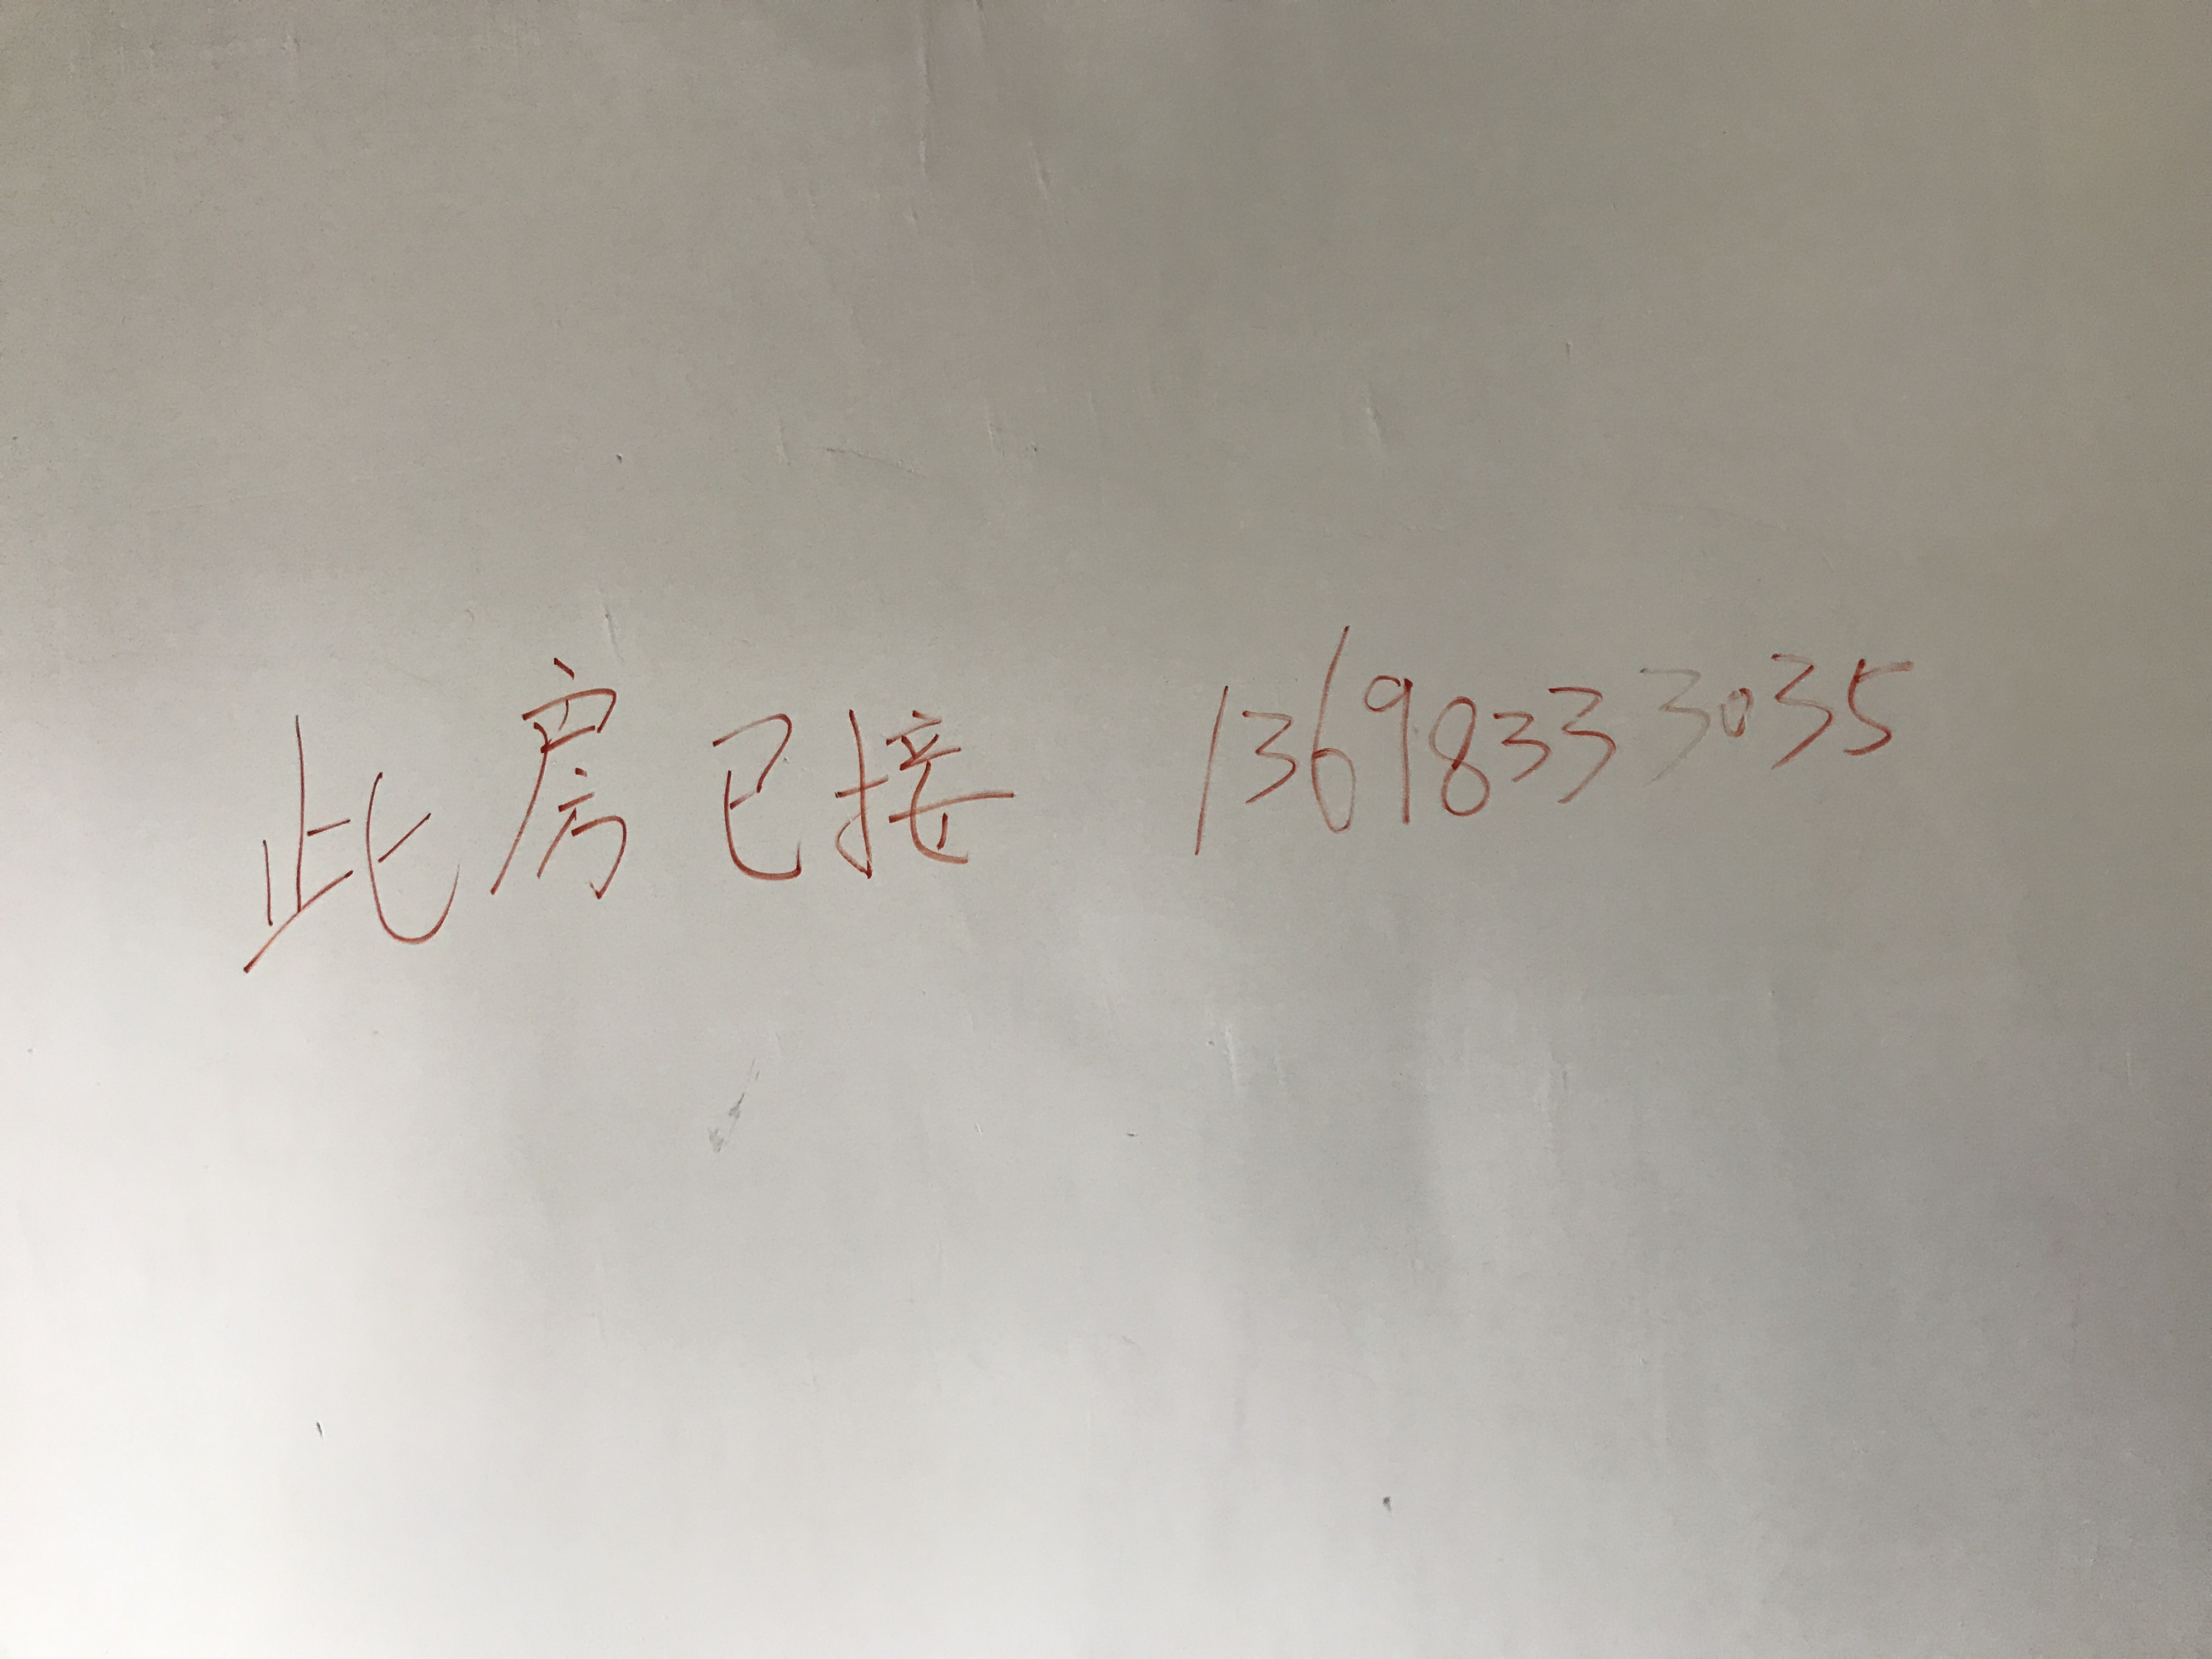 此房已接 13698333035